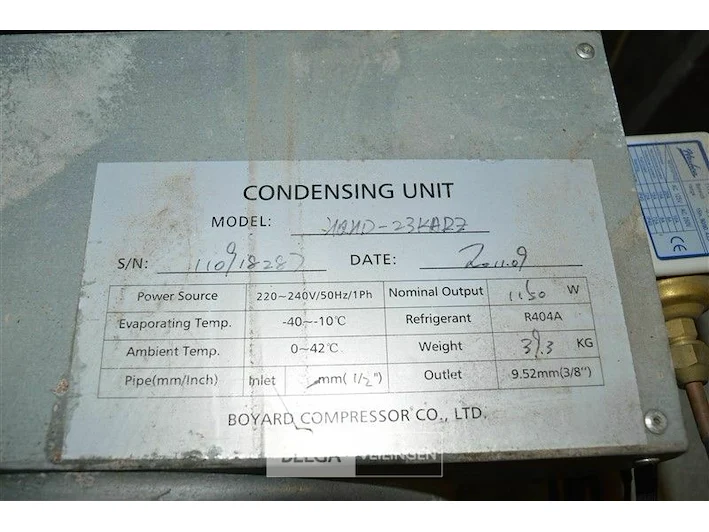 CONDENSING UNIT
MODEL:
S/N: DATE: 2011.09
Power Source 220~240V/50Hz/1Ph Nominal Output 1150 W
Evaporating Temp. -40~-10℃ Refrigerant R404A
Ambient Temp. 0~42℃ Weight KG
Pipe(mm/Inch) Inlet mm(1/2") Outlet 9.52mm(3/8")
BOYARD COMPRESSOR CO., LTD.
DELGA VEILINGEN
CE